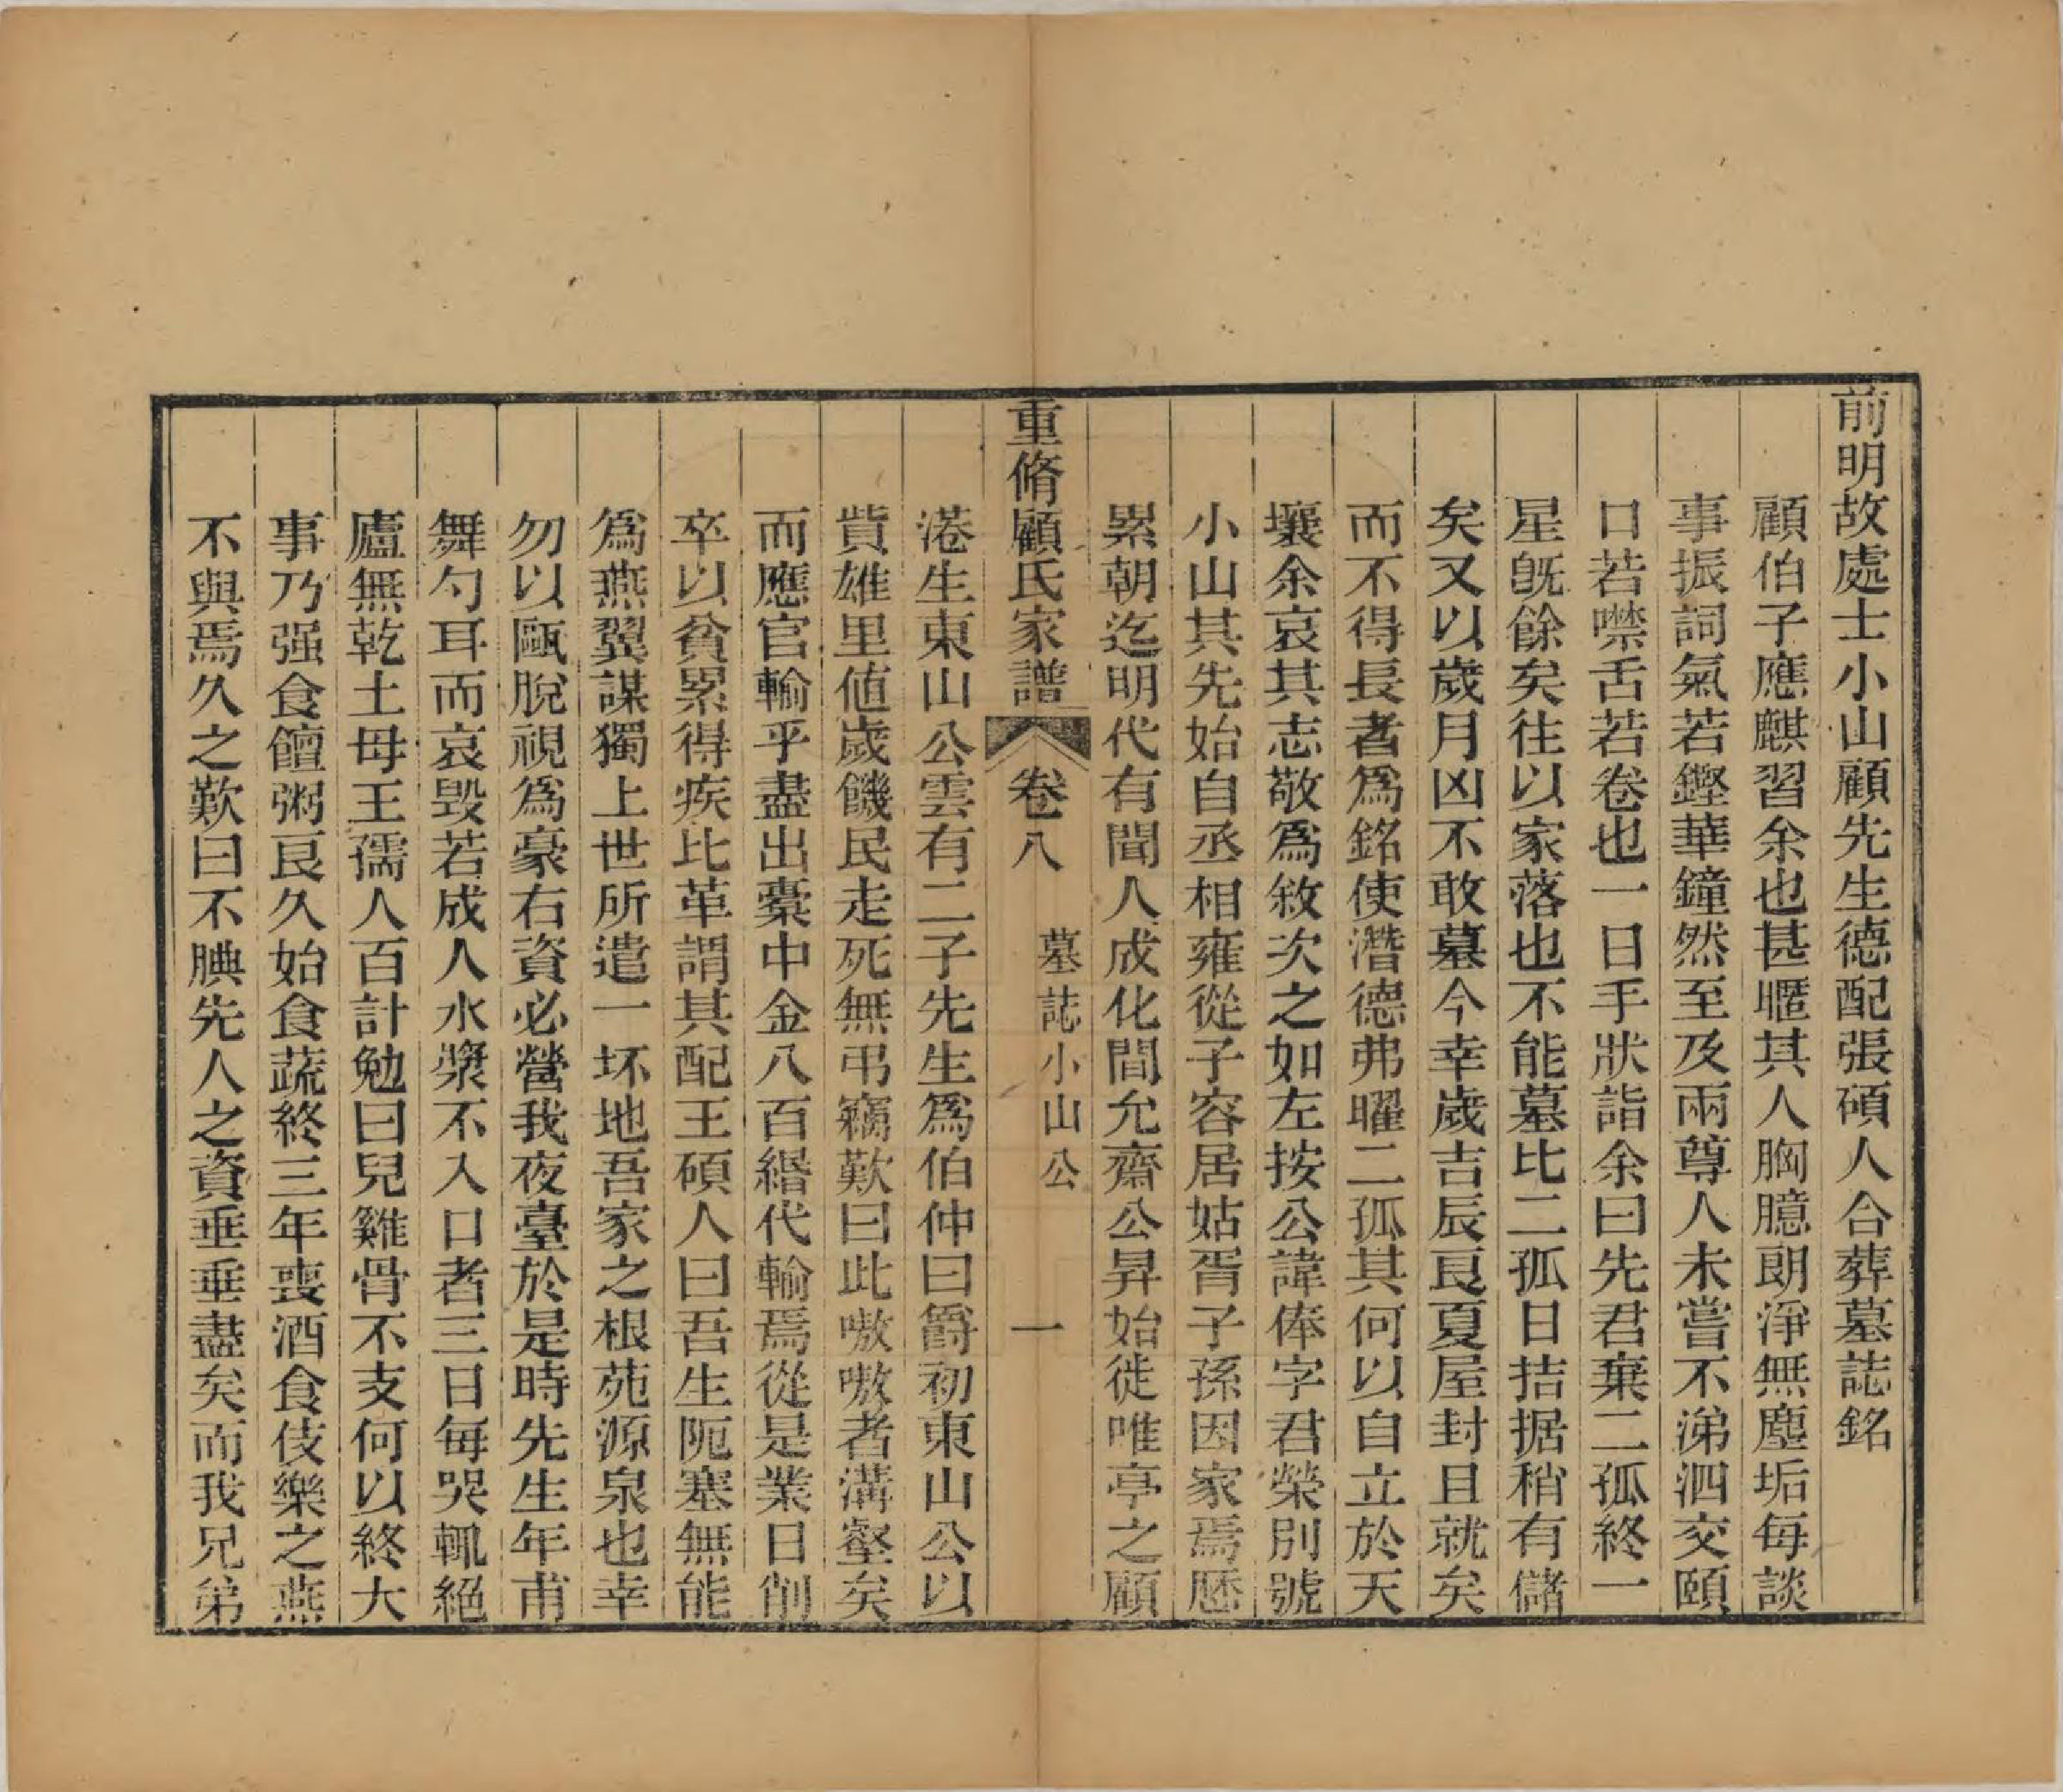 前明故處士小山顧先生德配張碩人合葬墓誌銘
顧伯子應麒習余也甚暱其人胸臆朗淨無塵垢每談
事振詞氣若鏗華鐘然至及兩尊人未嘗不涕泗交頤
口若噤舌若卷也一日手狀詣余曰先君棄二孤終一
星旣餘矣往以家落也不能墓比二孤日拮据稍有儲
矣又以歲月凶不敢墓今幸歲吉辰良夏屋封且就矣
而不得長者爲銘使潛德弗曜二孤其何以自立於天
壤余哀其志敬爲敘次之如左按公諱俸字君榮別號
小山其先始自丞相雍從子容居姑胥子孫因家焉歷
累朝迄明代有聞人成化間允齋公昇始徙唯亭之顧
重脩顧氏家譜 卷八 墓誌小山公 一
港生東山公雲有二子先生爲伯仲曰爵初東山公以
貲雄里値歲饑民走死無弔竊歎曰此嗷嗷者溝壑矣
而應官輸乎盡出橐中金八百緡代輸焉從是業日削
卒以貧累得疾比革謂其配王碩人曰吾生阨塞無能
爲燕翼謀獨上世所遣一坏地吾家之根苑源泉也幸
勿以甌脫視爲豪右資必營我夜臺於是時先生年甫
舞勺耳而哀毁若成人水漿不入口者三日每哭輒絕
廬無乾土母王孺人百計勉曰兒雞骨不支何以終大
事乃强食饘粥良久始食蔬終三年喪酒食伎樂之燕
不與焉久之歎曰不腆先人之資垂垂盡矣而我兄弟